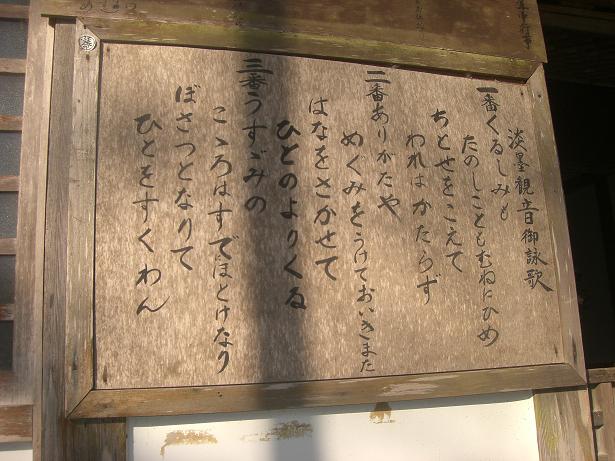 淡墨観音御詠歌
一番くるしみも
たのしこともむねにひめ
ちとせをこえて
われはかたらず
二番ありがたや
めぐみをうけておいきまた
はなをさかせて
ひとのよりくる
三番うすゞみの
こゝろはすでほとけなり
ぼさつとなりて
ひとをすくわん